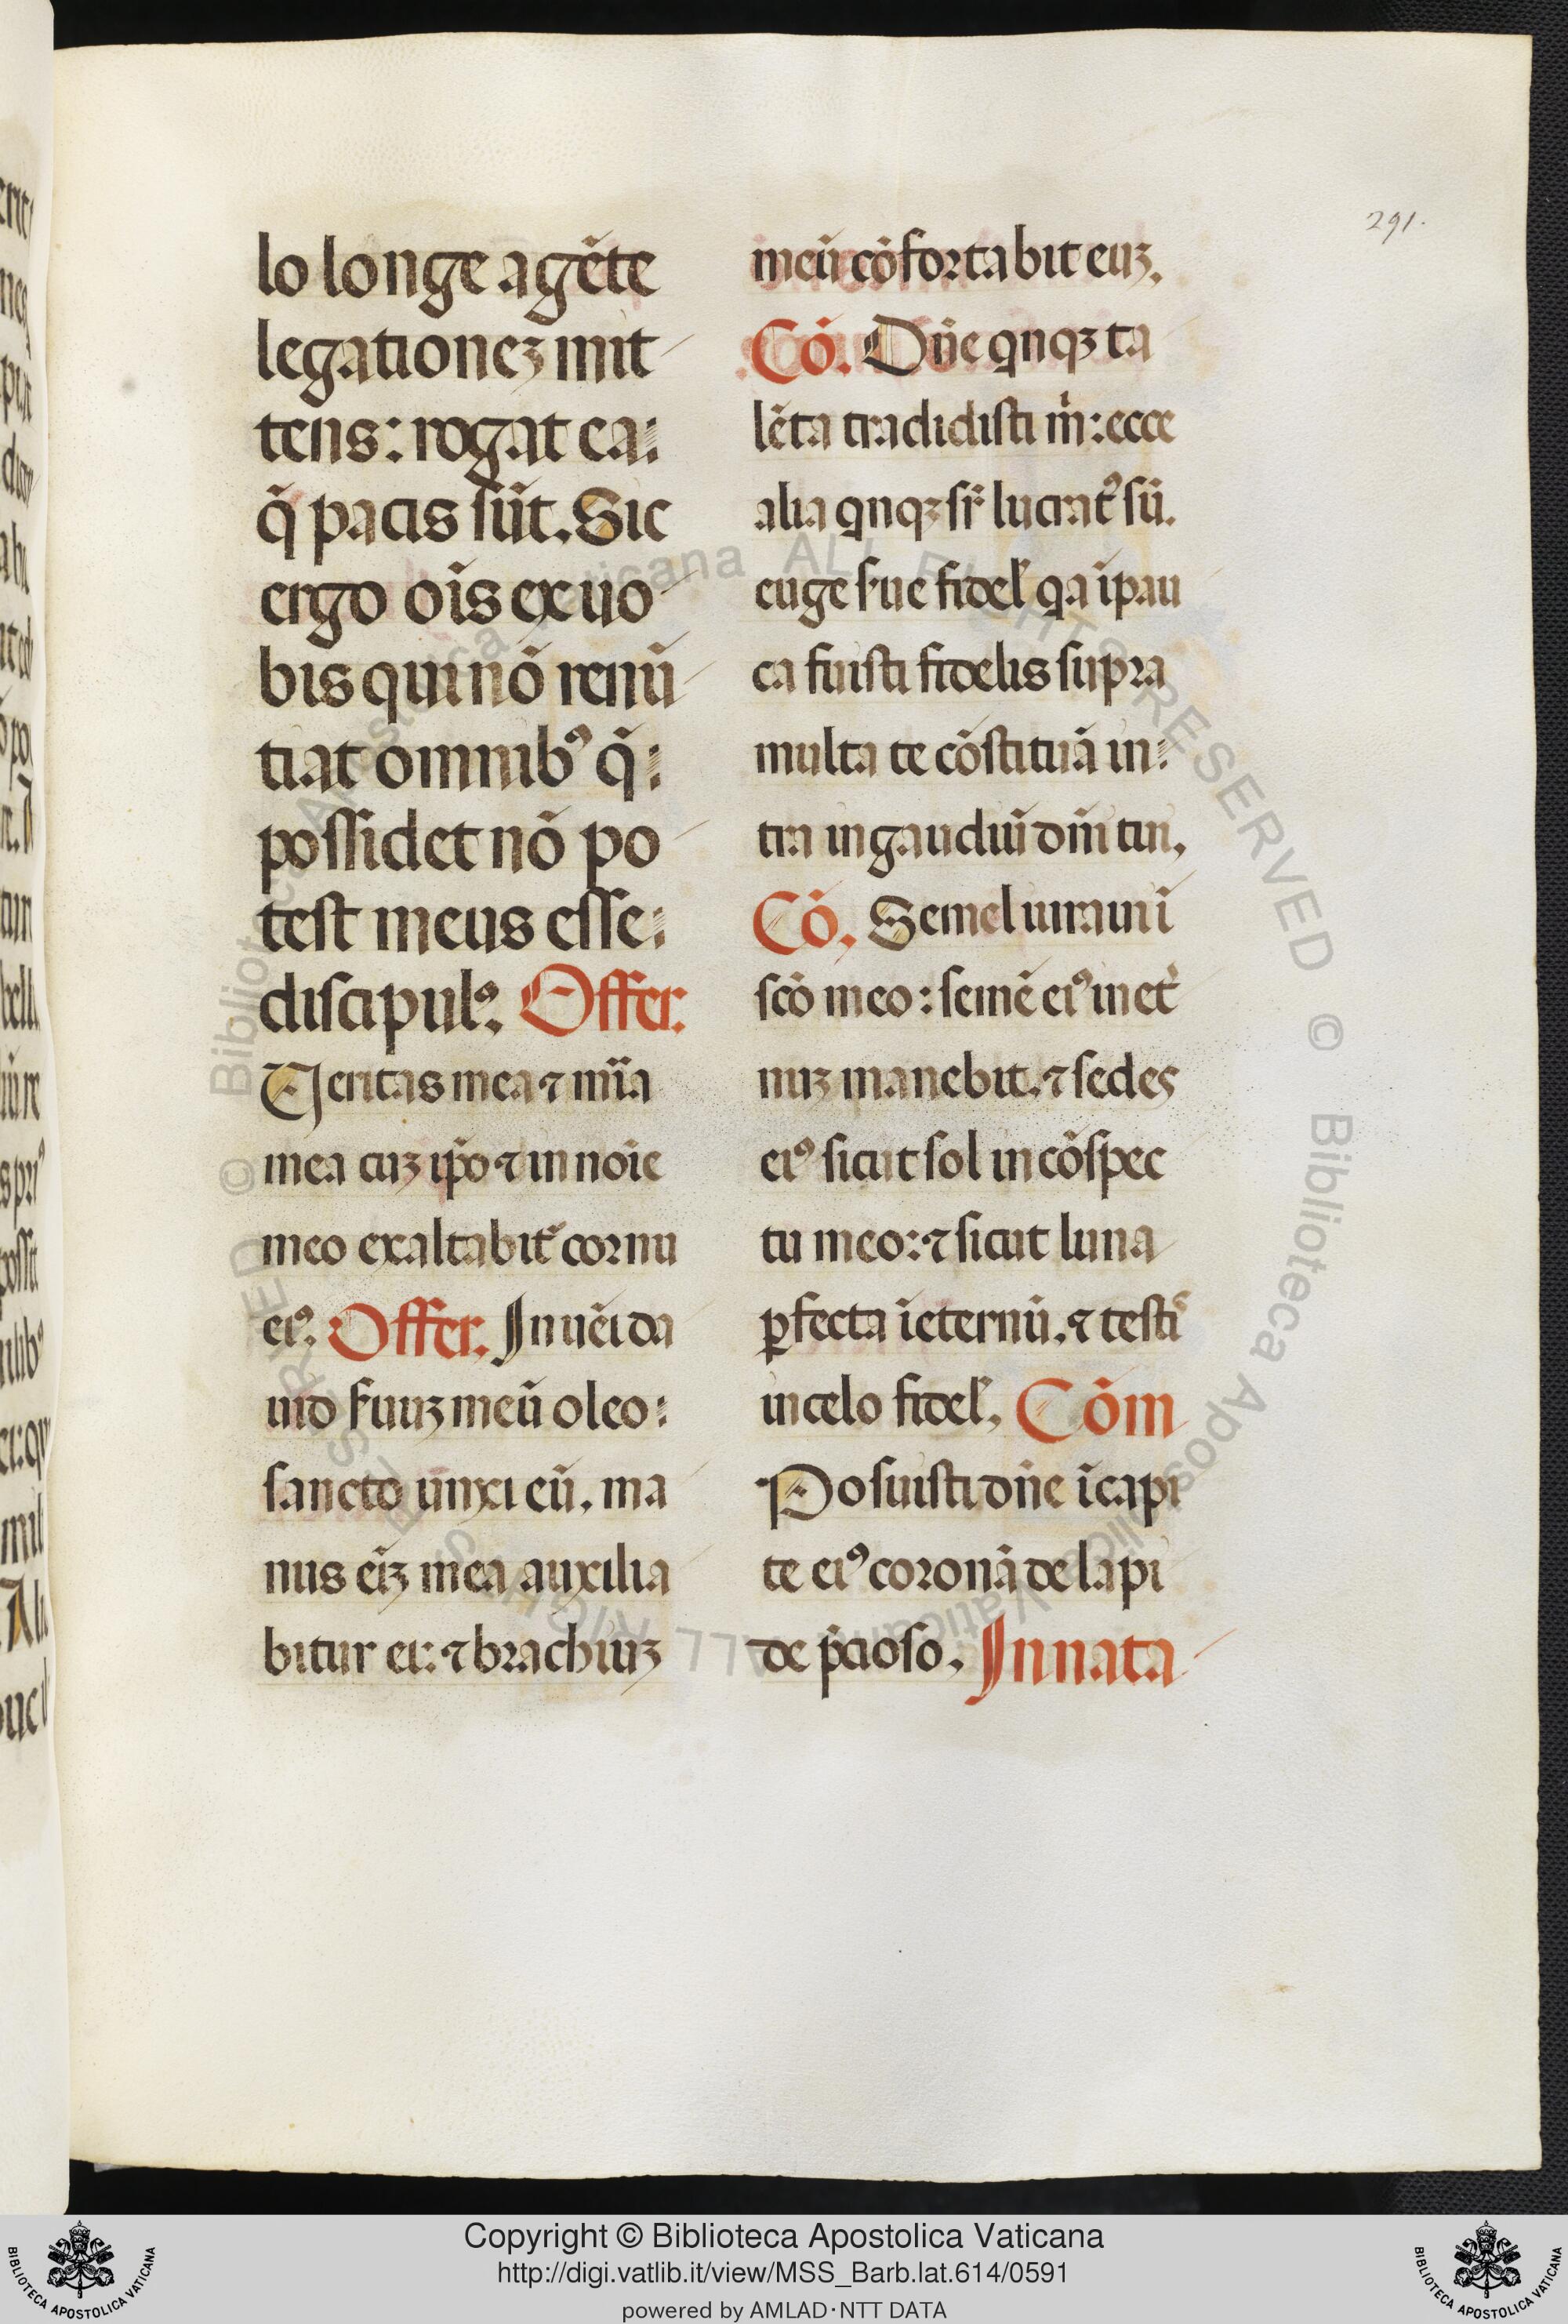 291.
lo longe agẽte
legationeꝫ mit
tens: rogat ea:
q̃ pacis sũt. Sic
ergo oĩs ex uo
bis qui nõ renũ
tiat omnibꝰ q̃:
possidet nõ po
test meus esse:
discipulꝰ. Offer.
Veritas mea ⁊ mĩa
mea cuꝫ ip̃o ⁊ in noĩe
meo exaltabit᷑ cornu
eiꝰ. Offer. Inuẽi da
uid ẜuuꝫ meũ oleo:
sancto unxi eũ. ma
nus eĩꝫ mea auxilia
bitur ei: ⁊ brachiuꝫ
meũ cõfortabit euꝫ.
Cõ. Dñe qnqꝫ ta
lẽta tradidisti m̃: ecce
alia qnqꝫ sr̃ lucratꝰ sũ.
euge ẜue fidel̃ qa ĩ pau
ca fuisti fidelis supra
multa te cõstituã in:
tra in gaudiũ dñi tui.
Cõ. Semel iuraui ĩ
scõ meo: semẽ eiꝰ in et̃
nuꝫ manebit. ⁊ sedes
eiꝰ sicut sol in cõspec
tu meo: ⁊ sicut luna
ꝑfecta ĩ eternũ. ⁊ testis
in celo fidel̃. Cõm
Posuisti dñe ĩ capi
te eiꝰ coronã de lapi
de p̃cioso. In nata
Copyright © Biblioteca Apostolica Vaticana
http://digi.vatlib.it/view/MSS_Barb.lat.614/0591
powered by AMLAD·NTT DATA
BIBLIOTECA APOSTOLICA VATICANA
BIBLIOTECA APOSTOLICA VATICANA